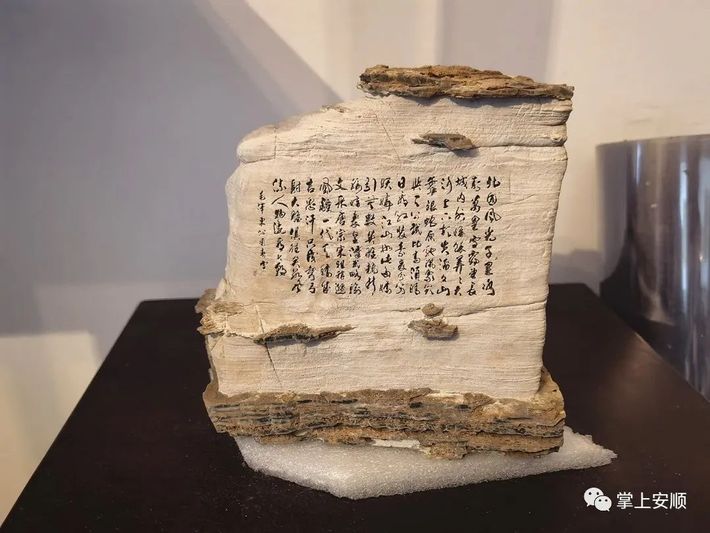 北国风光千里冰
封万里雪飘望长
城内外惟馀莽莽大
河上下顿失滔滔山
舞银蛇原驰蜡象欲
与天公试比高须晴
日看红装素裹分外
妖娆江山如此多娇
引无数英雄竞折
腰惜秦皇汉武略输
文采唐宗宋祖稍逊
风骚一代天骄成
吉思汗只识弯弓
射大雕俱往矣数风
流人物还看今朝
毛泽东沁园春雪
掌上安顺